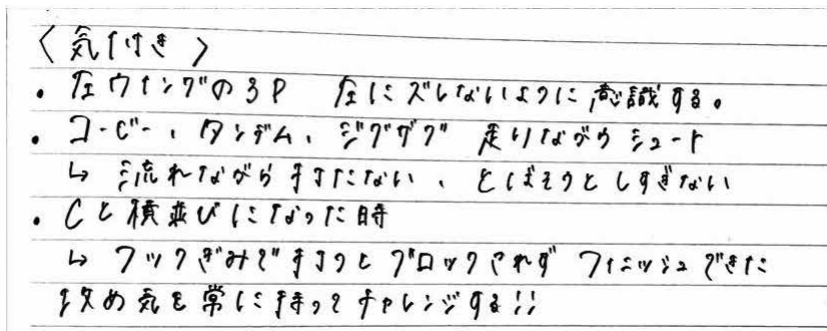 〈気付き〉
・左ウイングの3P 左にズレないように意識する。
・コービー、タンデム、ジグザグ 走りながらシュート
↳ 流れながら打たない、とばそうとしすぎない
・Cと横並びになった時
↳ フックぎみで打つとブロックされず フィニッシュできた
攻め気を常に持ってチャレンジする!!